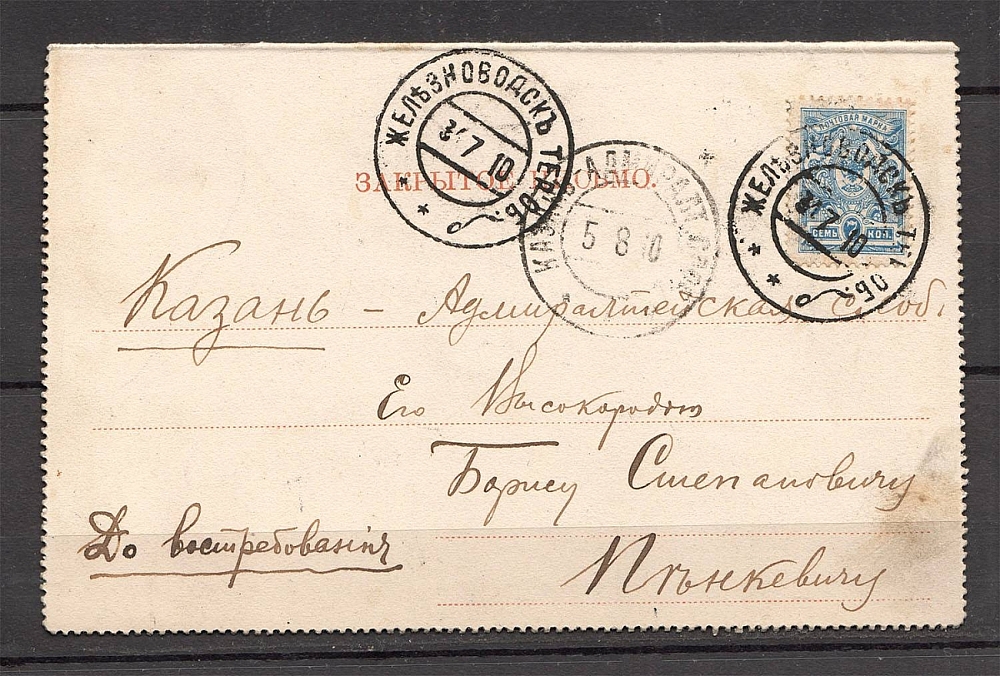 ЖЕЛѢЗНОВОДСКЪ ТЕР. ОБ.
31 7 10
ПОЧТОВАЯ МАРКА
7
СЕМЬ КОП.
ЖЕЛѢЗНОВОДСКЪ ТЕР. ОБ.
7 10
ЗАКРЫТОЕ ПИСЬМО.
АДМИРАЛТ.
5 8 10
Казань – Адмиралтейская слоб.
Его Высокородію
Борису Степановичу
До востребованія